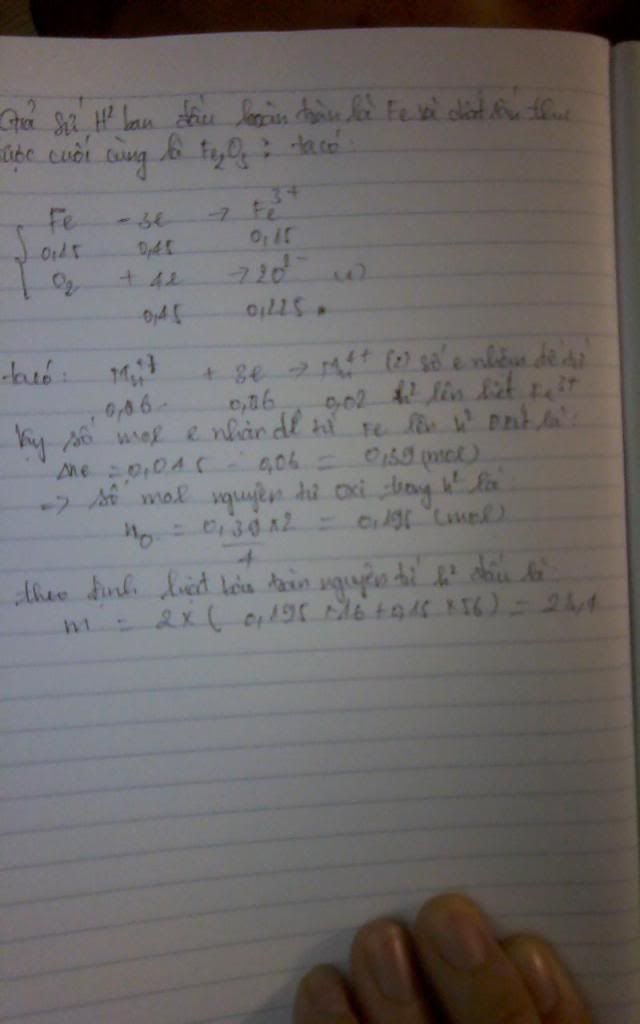 Giả sử H² ban đầu hoàn toàn là Fe và chất rắn thu
được cuối cùng là Fe₂O₃ : ta có:
Fe - 3e → Fe³⁺
0,15 0,45 0,15
O₂ + 4e → 2O²⁻ (1)
0,45 0,225
ta có: + 3e → (2) số e nhận để từ
0,06 0,06 0,02 h² lên hết Fe³⁺
Vậy số mol e nhận để từ Fe lên h² là:
= 0,045 - 0,06 = 0,39 (mol)
=> số mol nguyên tử oxi trong h² là
n₀ = 0,39 x 2 = 0,195 (mol)
4
theo định luật bảo toàn nguyên tố h² đầu là:
m = 2 x ( 0,195 x 16 + 0,15 x 56 ) =